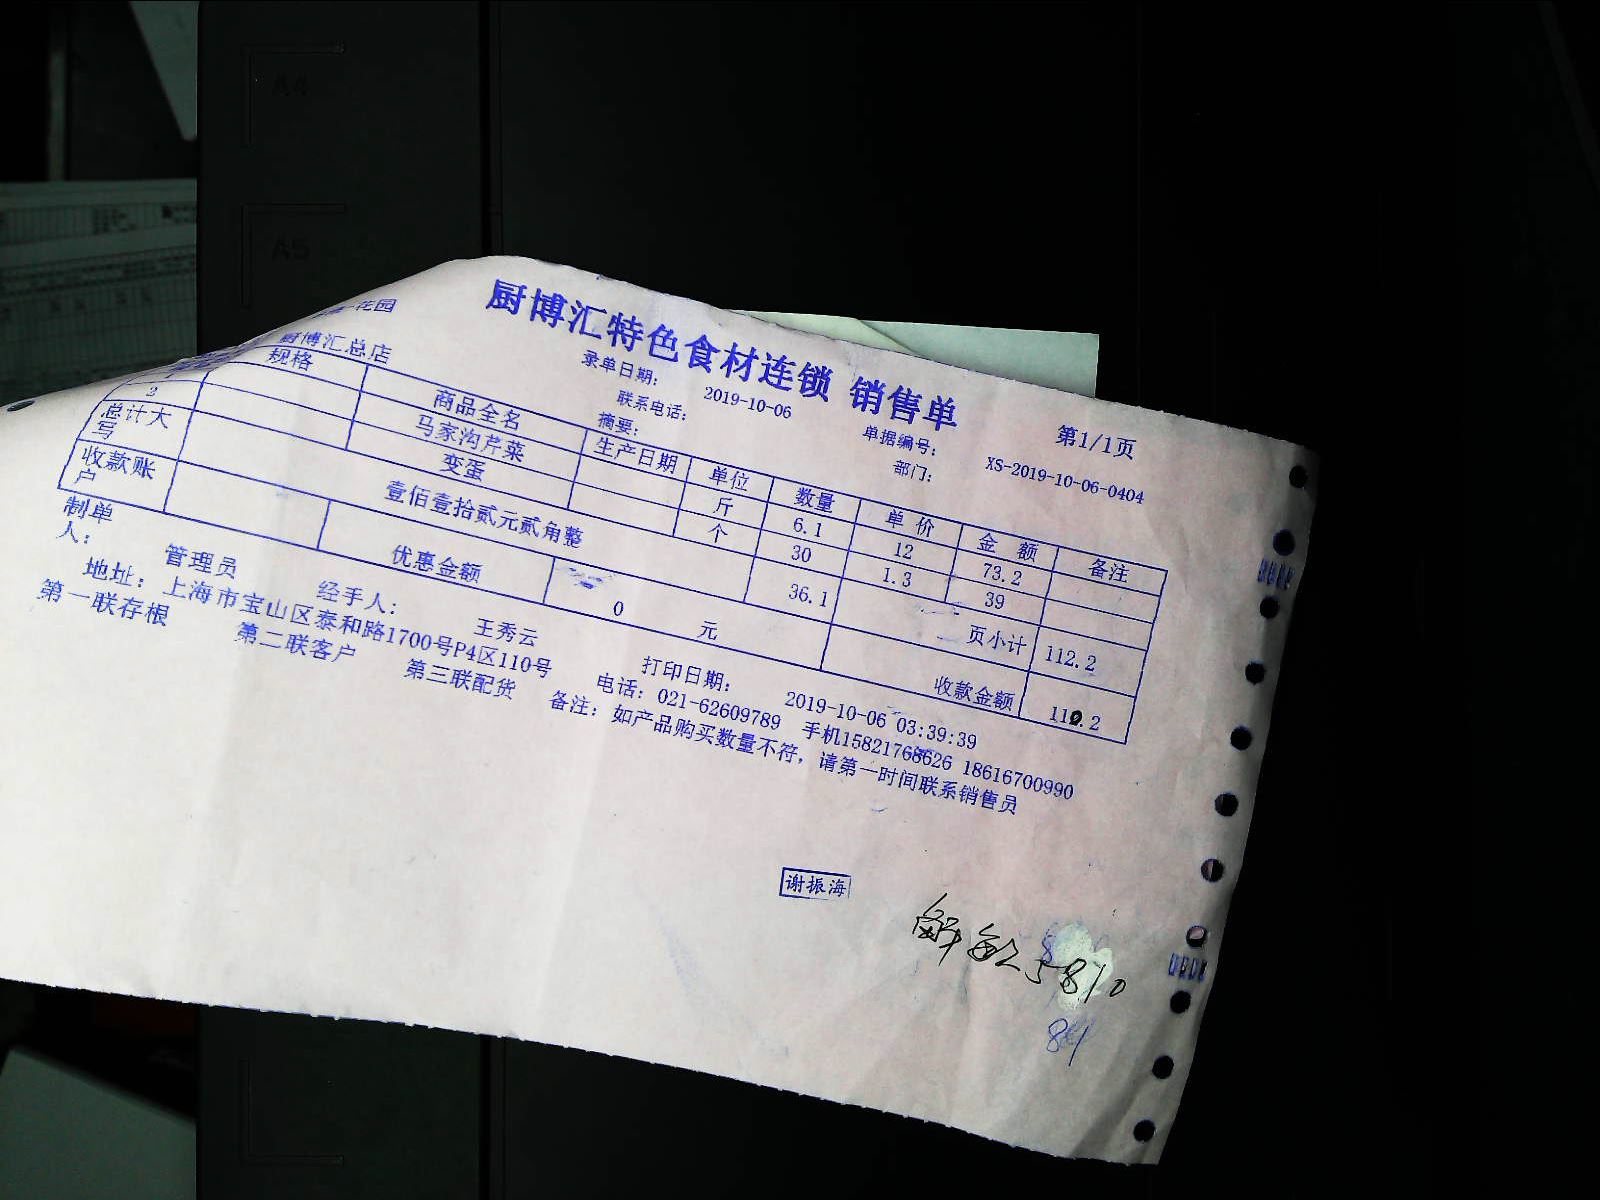 厨博汇特色食材连锁 销售单
第1/1页
花园
录单日期: 2019-10-06
单据编号: XS-2019-10-06-0404
厨博汇总店
联系电话:
部门:
摘要:
规格 商品全名 生产日期 单位 数量 单价 金额 备注
马家沟芹菜 斤 6.1 12 73.2
2 变蛋 个 30 1.3 39
总计大写 壹佰壹拾贰元贰角整 36.1 页小计 112.2
收款账户 优惠金额 0 元 收款金额 110.2
制单人: 管理员 经手人: 王秀云 打印日期: 2019-10-06 03:39:39
地址: 上海市宝山区泰和路1700号P4区110号 电话: 021-62609789 手机15821768626 18616700990
第一联存根 第二联客户 第三联配货 备注: 如产品购买数量不符，请第一时间联系销售员
谢振海
5810
A4
A5